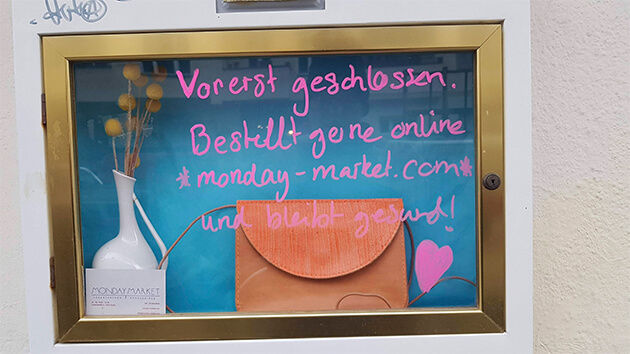 Vorerst geschlossen.
Bestellt gerne online
*monday-market.com*
und bleibt gesund!
MONDAY MARKET